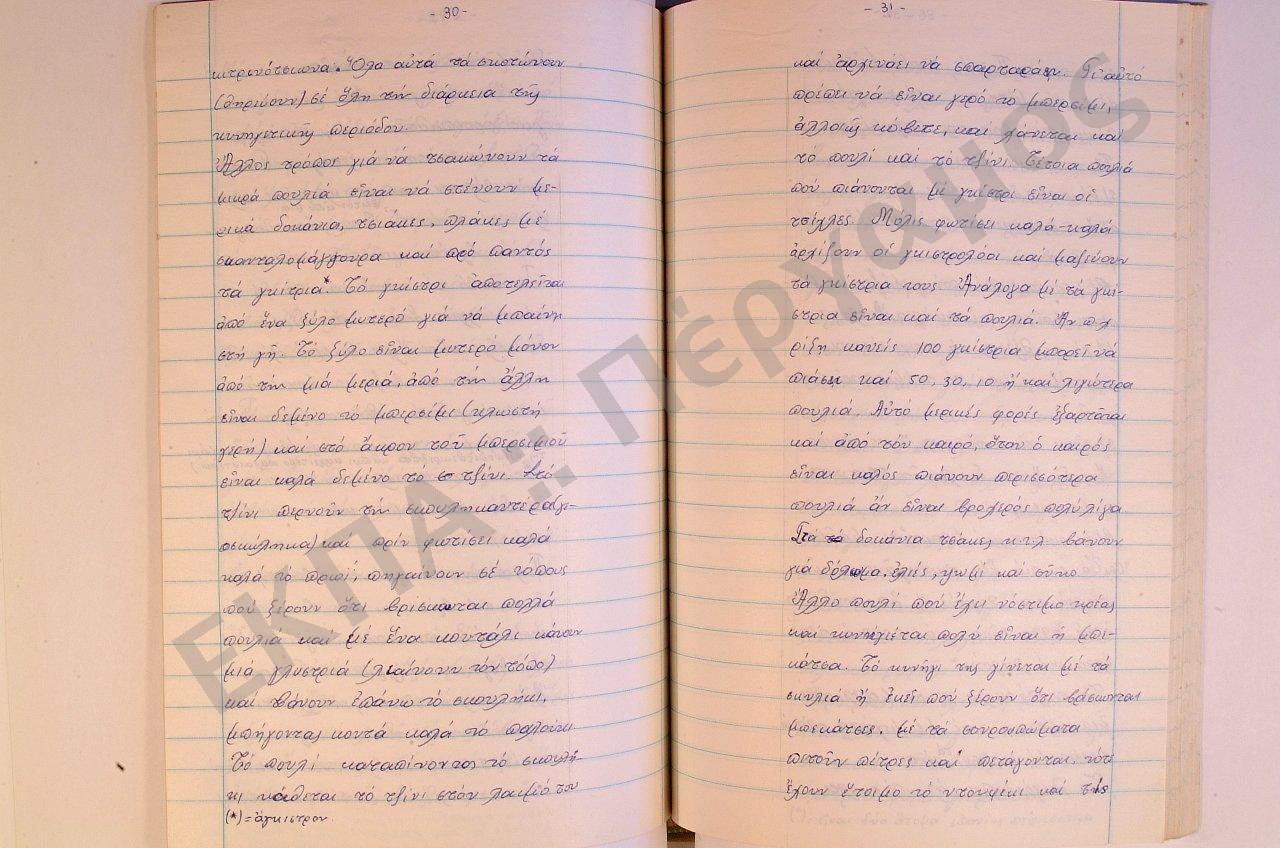 - 30 -
κιτρινότσικνα. Ὅλα αὐτά τά σκοτώνουν
(θηρεύουν) σέ ὅλη τήν διάρκεια τῆς
κυνηγετικῆς περιόδου
Ἄλλος τρόπος γιά νά τσακώνουν τά
μικρά πουλιά εἶναι νά στένουν με-
ρικά δοκάνια, τσιάκες, πλάκες μέ
σκανταλομάγγουρα καί πρό παντός
τά γκίτρια*. Τό γκίστρι ἀποτελεῖται
ἀπό ἕνα ξύλο μυτερό γιά νά μπαίνη
στή γῆ. Τό ξύλο εἶναι μυτερό μόνον
ἀπό τήν μιά μεριά, ἀπό τήν ἄλλη
εἶναι δεμένο τό μπερσίμι (κλωστή
γερή) καί στό ἄκρον τοῦ μπερσιμιοῦ
εἶναι καλά δεμένο τό τζίνι. Στό
τζίνι περνοῦν τήν σκουληκαντέρα (γε-
οσκώληκα) καί πρίν φωτίσει καλά
καλά τό πρωί, πηγαίνουν σέ τόπους
πού ξέρουν ὅτι βρίσκωνται πολλά
πουλιά καί μέ ἕνα κουτάλι κάνουν
μιά γλυστριά (λιαίνουν τόν τόπο)
καί βάνουν ἐπάνω τό σκουλήκι,
μπήγοντας κοντά καλά τό παλούκι.
Τό πουλί καταπίνοντας τό σκουλή-
κι κάθεται τό τζίνι στόν λαιμό του
(*) = ἀγκιστρον.
- 31 -
καί ἀρχινάει νά σπαρταράῃ. Γι' αὐτό
πρέπει νά εἶναι γερό τό μπερσίμι,
ἀλλοιῶς κόβετε, καί χάνεται καί
τό πουλί καί τό τζίνι. Τέτοια πουλιά
πού πιάνονται μέ γκίστρι εἶναι οἱ
τσίχλες. Μόλις φωτίσει καλά-καλά
ἀρχίζουν οἱ γκιστρολόοι καί μαζεύουν
τά γκίστρια τους. Ἀνάλογα μέ τά γκί-
στρια εἶναι καί τά πουλιά. Ἄν π.χ
ρίξη κανείς 100 γκίστρια μπορεῖ νά
πιάση καί 50, 30, 10 ἤ καί λιγώτερα
πουλιά. Αὐτό μερικές φορές ἐξαρτᾶται
καί ἀπό τόν καιρό, ὅταν ὁ καιρός
εἶναι καλός πιάνουν περισσότερα
πουλιά ἄν εἶναι βροχερός πολύ λίγα
Στά δοκάνια τσάκες κ.τ.λ βάνουν
γιά δόλωμα, ἐλιές, ψωμί καί σῦκο
Ἄλλο πουλί πού ἔχει νόστιμο κρέας
καί κυνηγιέται πολύ εἶναι ἡ μπε-
κάτσα. Τό κυνήγι της γίνεται μέ τά
σκυλιά ἤ ἐκεῖ πού ξέρουν ὅτι βόσκωνται
μπεκάτσες, μέ τά σουρουπώματα
πετοῦν πέτρες καί πετάγονται, τότε
ἔχουν ἕτοιμο τό ντουφέκι καί τής
ΕΚΠΑ :: Πέργαμος